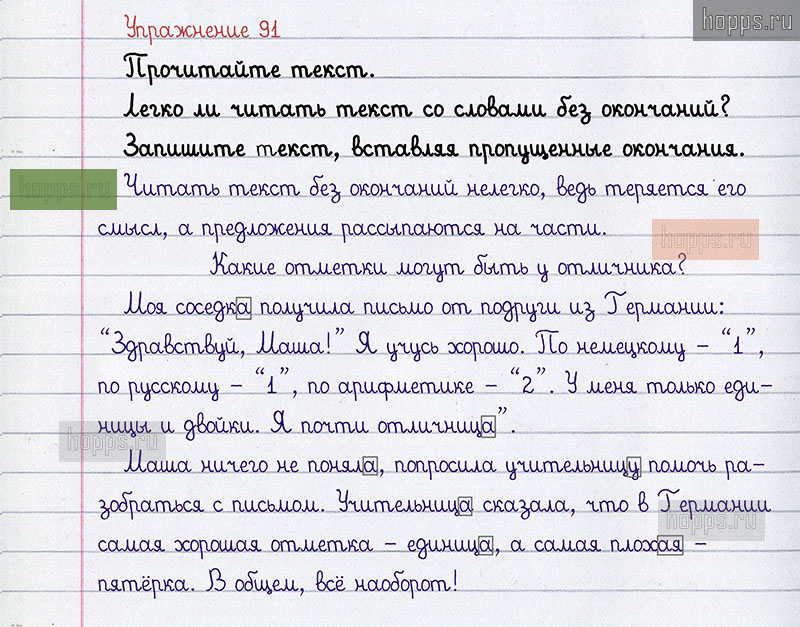 hopps.ru
Упражнение 91
Прочитайте текст.
Легко ли читать текст со словами без окончаний?
Запишите текст, вставляя пропущенные окончания.
hopps.ru
Читать текст без окончаний нелегко, ведь теряется его
смысл, а предложения рассыпаются на части.
hopps.ru
Какие отметки могут быть у отличника?
Моя соседка получила письмо от подруги из Германии:
“Здравствуй, Маша!” Я учусь хорошо. По немецкому – “1”,
по русскому – “1”, по арифметике – “2”. У меня только еди-
ницы и двойки. Я почти отличница”.
hopps.ru
Маша ничего не поняла, попросила учительницу помочь ра-
зобраться с письмом. Учительница сказала, что в Германии
hopps.ru
самая хорошая отметка – единица, а самая плохая –
пятёрка. В общем, всё наоборот!